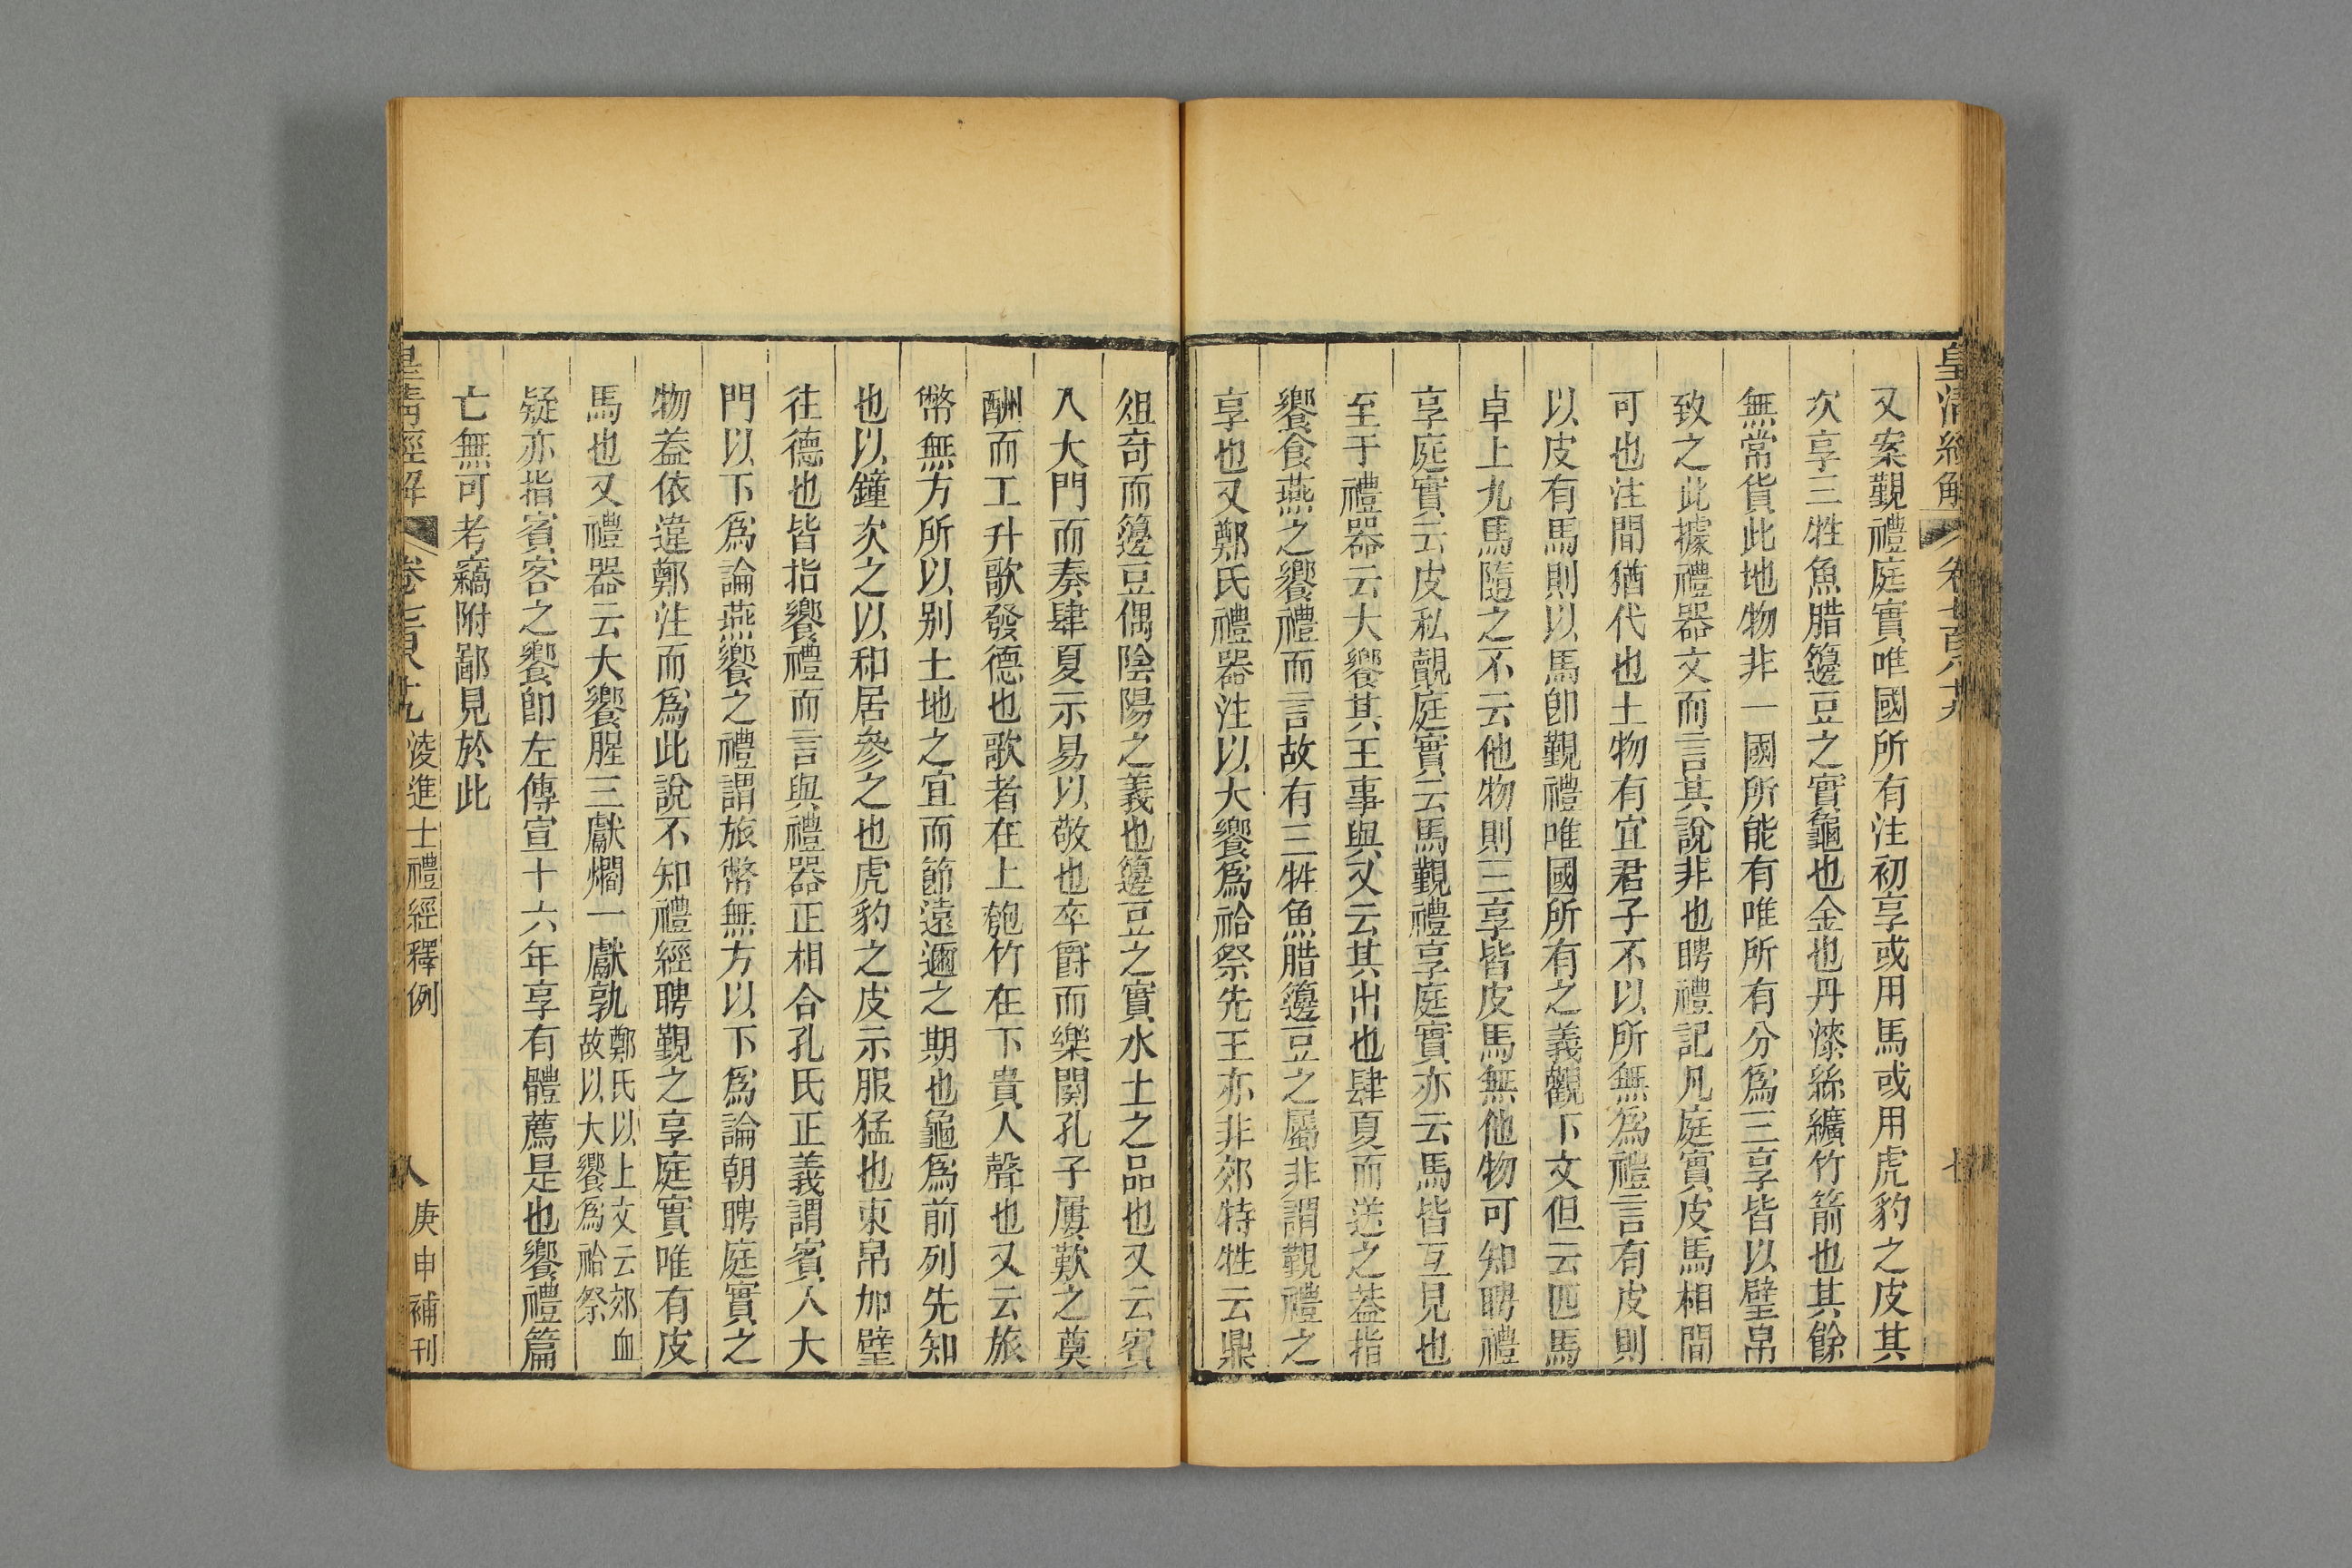 又案覲禮庭實唯國所有注初享或用馬或用虎豹之皮其
次享三牲魚腊籩豆之實龜也金也丹漆絲纊竹箭也其餘
無常貨此地物非一國所能有唯所有分爲三享皆以璧帛
致之此據禮器文而言其說非也聘禮記凡庭實皮馬相間
可也注間猶代也土物有宜君子不以所無爲禮言有皮則
以皮有馬則以馬卽覲禮唯國所有之義觀下文但云匹馬
卓上九馬隨之不云他物則三享皆皮馬無他物可知聘禮
享庭實云皮私覿庭實云馬覲禮享庭實亦云馬皆互見也
至于禮器云大饗其王事與又云其出也肆夏而送之葢指
饗食燕之饗禮而言故有三牲魚腊籩豆之屬非謂覲禮之
享也又鄭氏禮器注以大饗爲祫祭先王亦非郊特牲云鼎
俎奇而籩豆偶陰陽之義也籩豆之實水土之品也又云賓
入大門而奏肆夏示易以敬也卒爵而樂闋孔子屢歎之奠
酬而工升歌發德也歌者在上匏竹在下貴人聲也又云旅
幣無方所以别土地之宜而節遠邇之期也龜爲前列先知
也以鐘次之以和居參之也虎豹之皮示服猛也束帛加璧
往德也皆指饗禮而言與禮器正相合孔氏正義謂賓入大
門以下爲論燕饗之禮謂旅幣無方以下爲論朝聘庭實之
物葢依違鄭注而爲此說不知禮經聘覲之享庭實唯有皮
馬也又禮器云大饗腥三獻爓一獻孰鄭氏以上文云郊血故以大饗爲祫祭
疑亦指賓客之饗卽左傳宣十六年享有體薦是也饗禮篇
亡無可考竊附鄙見於此
皇清經解 卷七百八十九 淩進士禮經釋例 八 庚申補刊